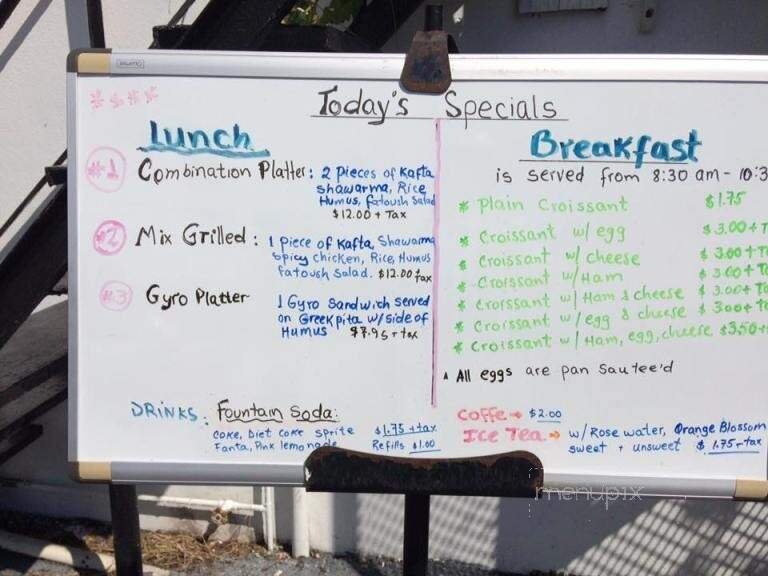 Today's Specials
Lunch
#1 Combination Platter: 2 pieces of Kafta
shawarma, Rice
Humus, fatoush Salad
$12.00 + Tax
#2 Mix Grilled: 1 piece of Kafta, Shawarma
spicy chicken, Rice, Humus
fatoush Salad. $12.00 + tax
#3 Gyro Platter 1 Gyro Sandwich served
on Greek pita w/side of
Humus $7.95 + tax
DRINKS: Fountain Soda:
Coke, Diet Coke Sprite $1.75 + tax
Fanta, Pink lemonade Refills $1.00
Breakfast
is served from 8:30 am - 10:3
* Plain Croissant $1.75
* Croissant w/ egg $3.00 + T
* Croissant w/ cheese $3.00 + T
* Croissant w/ Ham $3.00 + T
* Croissant w/ Ham & cheese $3.00 + T
* Croissant w/ egg & cheese $3.00 + T
* Croissant w/ Ham, egg, cheese $3.50 +
All eggs are pan Sautee'd
Coffe → $2.00
Ice Tea → w/ Rose water, Orange Blossom
sweet + unsweet $1.75 + tax
menupix